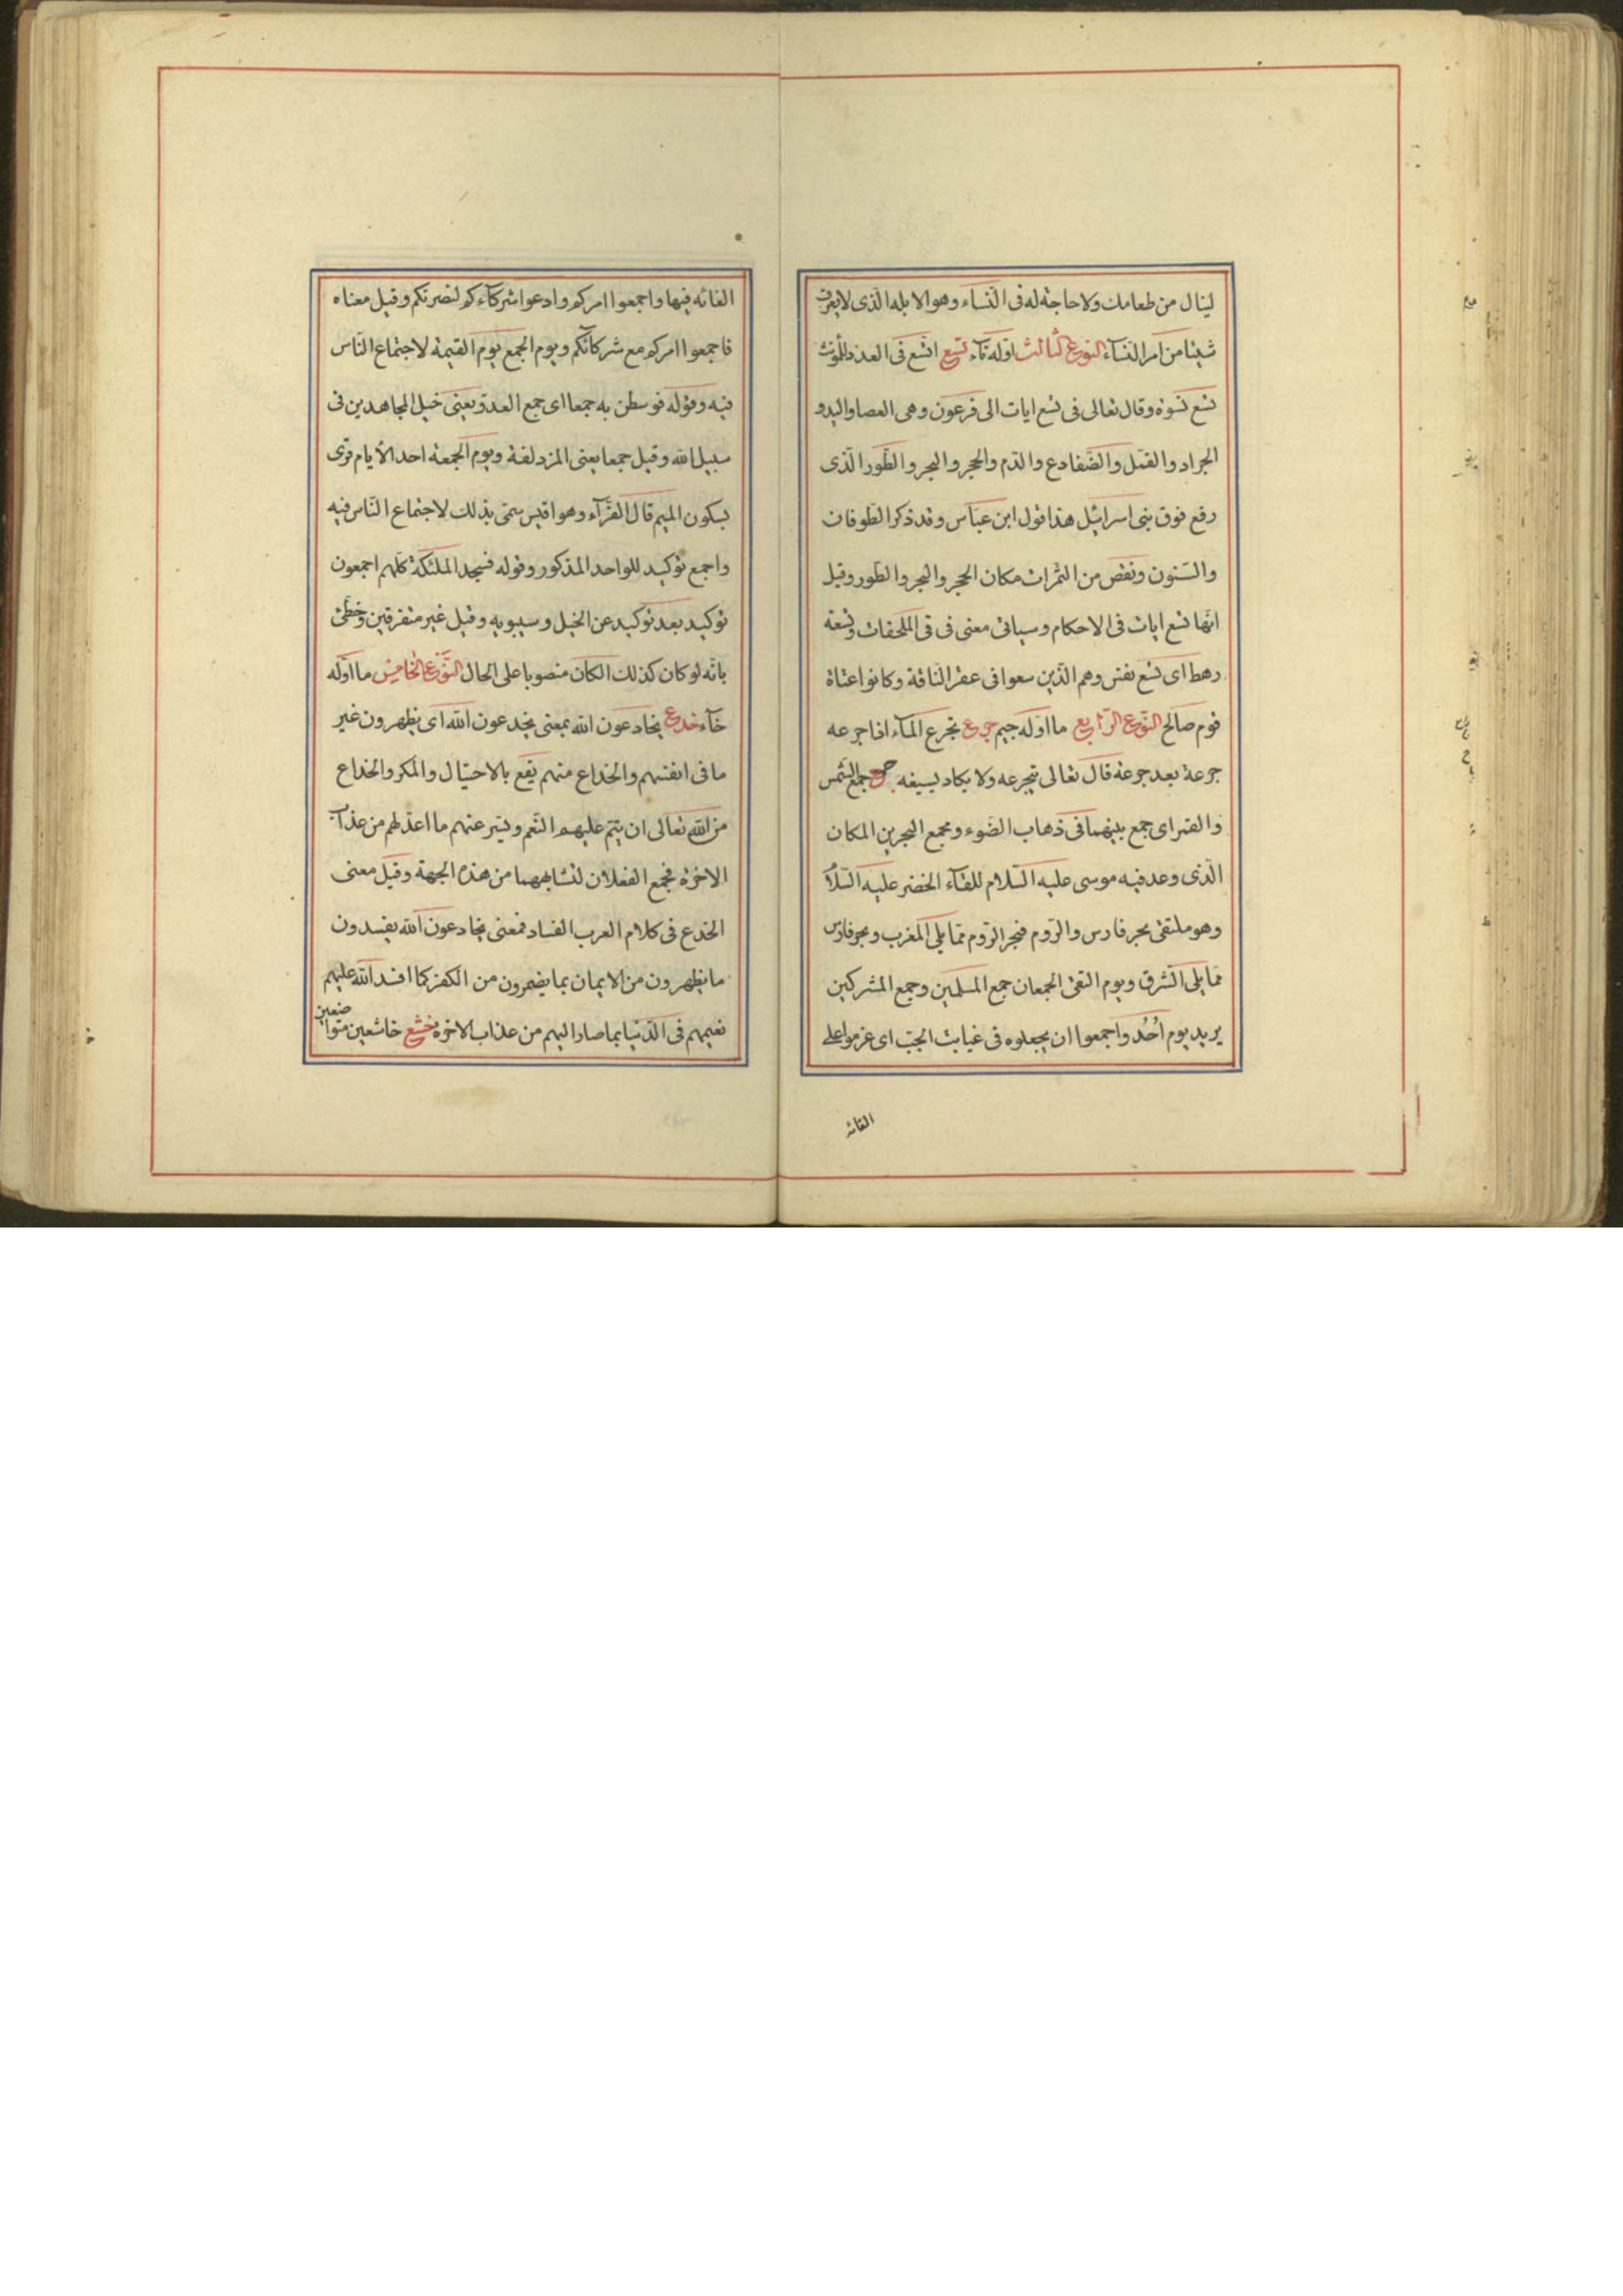 لينال من طعامك ولا حاجة له فى النسآء وهو الابله الذى لا يعرف
شيئا من امر النسآء النوع الثالث اوله تآء تسع اتسع فى العدد للمؤنث
تسع نسوة وقال تعالى فى تسع ايات الى فرعون وهى العصا واليد و
الجراد والقمل والضفادع والدم والحجر والبحر والطور الذى
رفع فوق بنى اسرائيل هذا قول ابن عباس وقد ذكر الطوفان
والسنون ونقص من الثمرات مكان الحجر والبحر والطور وقيل
انها تسع ايات فى الاحكام وسياتى معنى فى فى الملحقات وتسعة
رهط اى تسع نفس وهم الذين سعوا فى عقر الناقة وكانوا عتاة
قوم صالح النوع الرابع ما اوله جيم جرع تجرع المآء اذا جرعه
جرعة بعد جرعة قال تعالى يتجرعه ولا يكاد يسيغه جمع جمع الشمس
والقمر اى جمع بينهما فى ذهاب الضوء ومجمع البحرين المكان
الذى وعد فيه موسى عليه السلام للقآء الخضر عليه السلام
وهو ملتقى بحر فارس والروم فبحر الروم مما يلى المغرب وبحر فارس
مما يلى الشرق ويوم التقى الجمعان جمع المسلمين وجمع المشركين
يريد يوم اُحُد واجمعوا ان يجعلوه فى غيابت الجب اى عزموا على
القائه
القائه فيها واجمعوا امركم وادعوا شركآءكم لنصرتكم وقيل معناه
فاجمعوا امركم مع شركائكم ويوم الجمع يوم القيمة لاجتماع الناس
فيه وقوله فوسطن به جمعا اى جمع العدو يعنى خيل المجاهدين فى
سبيل الله وقيل جمعا يعنى المزدلفة ويوم الجمعة احد الأيام قرى
بسكون الميم قال الفرآء وهو اقيس سمى بذلك لاجتماع الناس فيه
واجمع توكيد للواحد المذكور وقوله فسجد الملئكة كلهم اجمعون
توكيد بعد توكيد عن الخيل وسيبويه وقيل غير متفرقين وخطئ
بانه لو كان كذلك لكان منصوبا على الحال النوع الخامس ما اوله
خآء خدع يخادعون الله بمعنى يخدعون الله اى يظهرون غير
ما فى انفسهم والخداع منهم يقع بالاحتيال والمكر والخداع
من الله تعالى ان يتم عليهم النعم ويستر عنهم ما اعد لهم من عذاب
الاخرة فجمع الفعلان لتشابههما من هذه الجهة وقيل معنى
الخدع فى كلام العرب الفساد فمعنى يخادعون الله يفسدون
ما يظهرون من الايمان بما يضمرون من الكفر كما افسد الله عليهم
نعيمهم فى الدنيا بما صاروا اليهم من عذاب الاخرة خشع خاشعين متواضعين